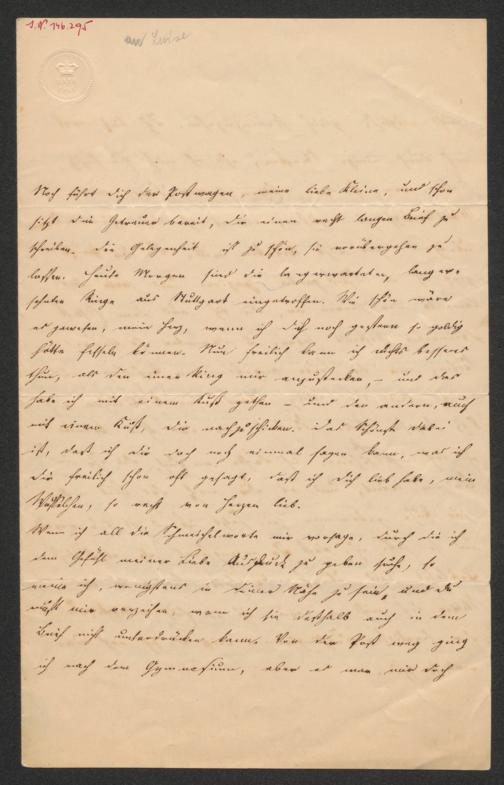 I.N. 146.295
an Luise
Noch führt dich der Postwagen, meine liebe Kleine, und schon
sitzt die Getreue bereit, dir einen recht langen Brief zu
schreiben. Die Gelegenheit ist zu schön, sie vorübergehen zu
lassen. Heute Morgen sind die langerwarteten, langer-
sehnten Ringe aus Stuttgart eingetroffen. Wie schön wäre
es gewesen, mein Herz, wenn ich dich noch gestern so goldig
hätte fesseln können. Nun freilich kann ich nichts besseres
thun, als den einen Ring mir anzustecken, – und das
habe ich mit einem Kuß gethan – und den andern, auch
mit einem Kuß, dir nachzuschicken. Das Schönste dabei
ist, daß ich dir doch noch einmal sagen kann, was ich
dir freilich schon oft gesagt, daß ich dich lieb habe, mein
so recht von Herzen lieb.
Wenn ich all die Schmeichelworte mir vorsage, durch die ich
dem Gefühl meiner Liebe Ausdruck zu geben suche, so
meine ich, wenigstens in deiner Nähe zu sein, und du
mußt mir verzeihen, wenn ich sie deßhalb auch in dem
Brief nicht unterdrücken kann. Von der Post weg ging
ich nach dem Gymnasium, aber es war mir doch